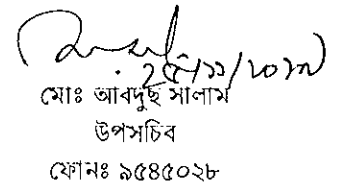 ২৫/১১/২০২০
মোঃ আবদুছ সালাম
উপসচিব
ফোনঃ ৯৫৪৫০২৮